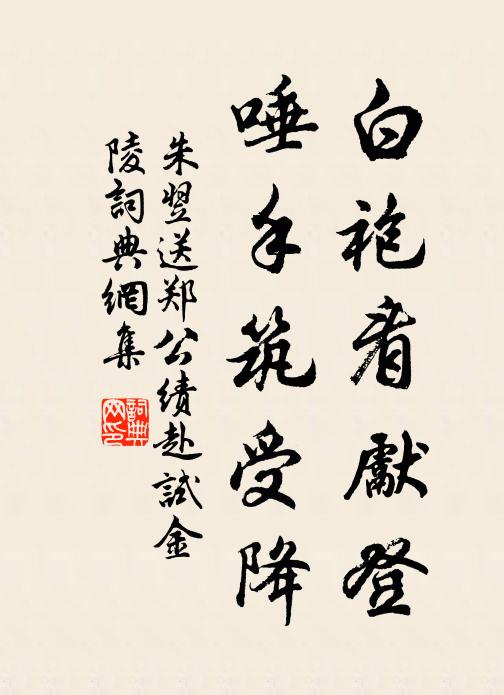 白袍看獻登
唾手筑受降
朱翌送郑公績赴試金
陵詞典網集
詞典
网印